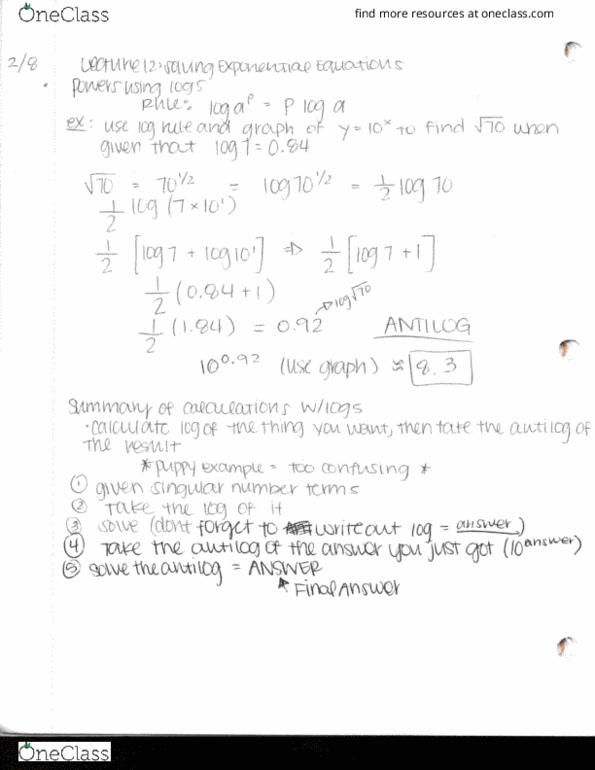 OneClass
find more resources at oneclass.com
2/8 Lecture 12: Solving Exponential Equations
• Powers using logs
Rule: log aᵖ = P log a
ex: use log rule and graph of y = 10ˣ to find √70 when
given that log 7 = 0.84
√70 = 70^1/2 = log 70^1/2 = 1/2 log 70
1/2 log (7 × 10¹)
1/2 [log 7 + log 10¹] ⇒ 1/2 [log 7 + 1]
1/2 (0.84 + 1)
→ log √70
1/2 (1.84) = 0.92 ANTILOG
10^0.92 (use graph) ≈ 8.3
Summary of calculations w/logs
• calculate log of the thing you want, then take the antilog of
the result
* puppy example = too confusing *
① given singular number terms
② Take the log of it
③ solve (dont forget to write out log = answer)
④ Take the antilog of the answer you just got (10^answer)
⑤ solve the antilog = ANSWER
Final Answer
OneClass